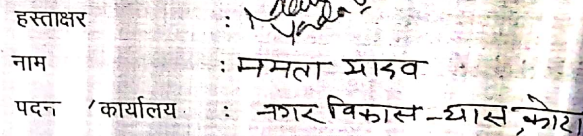 हस्ताक्षर :
नाम : ममता यादव
पदन /कार्यालय : नगर विकास -यास, कोटा